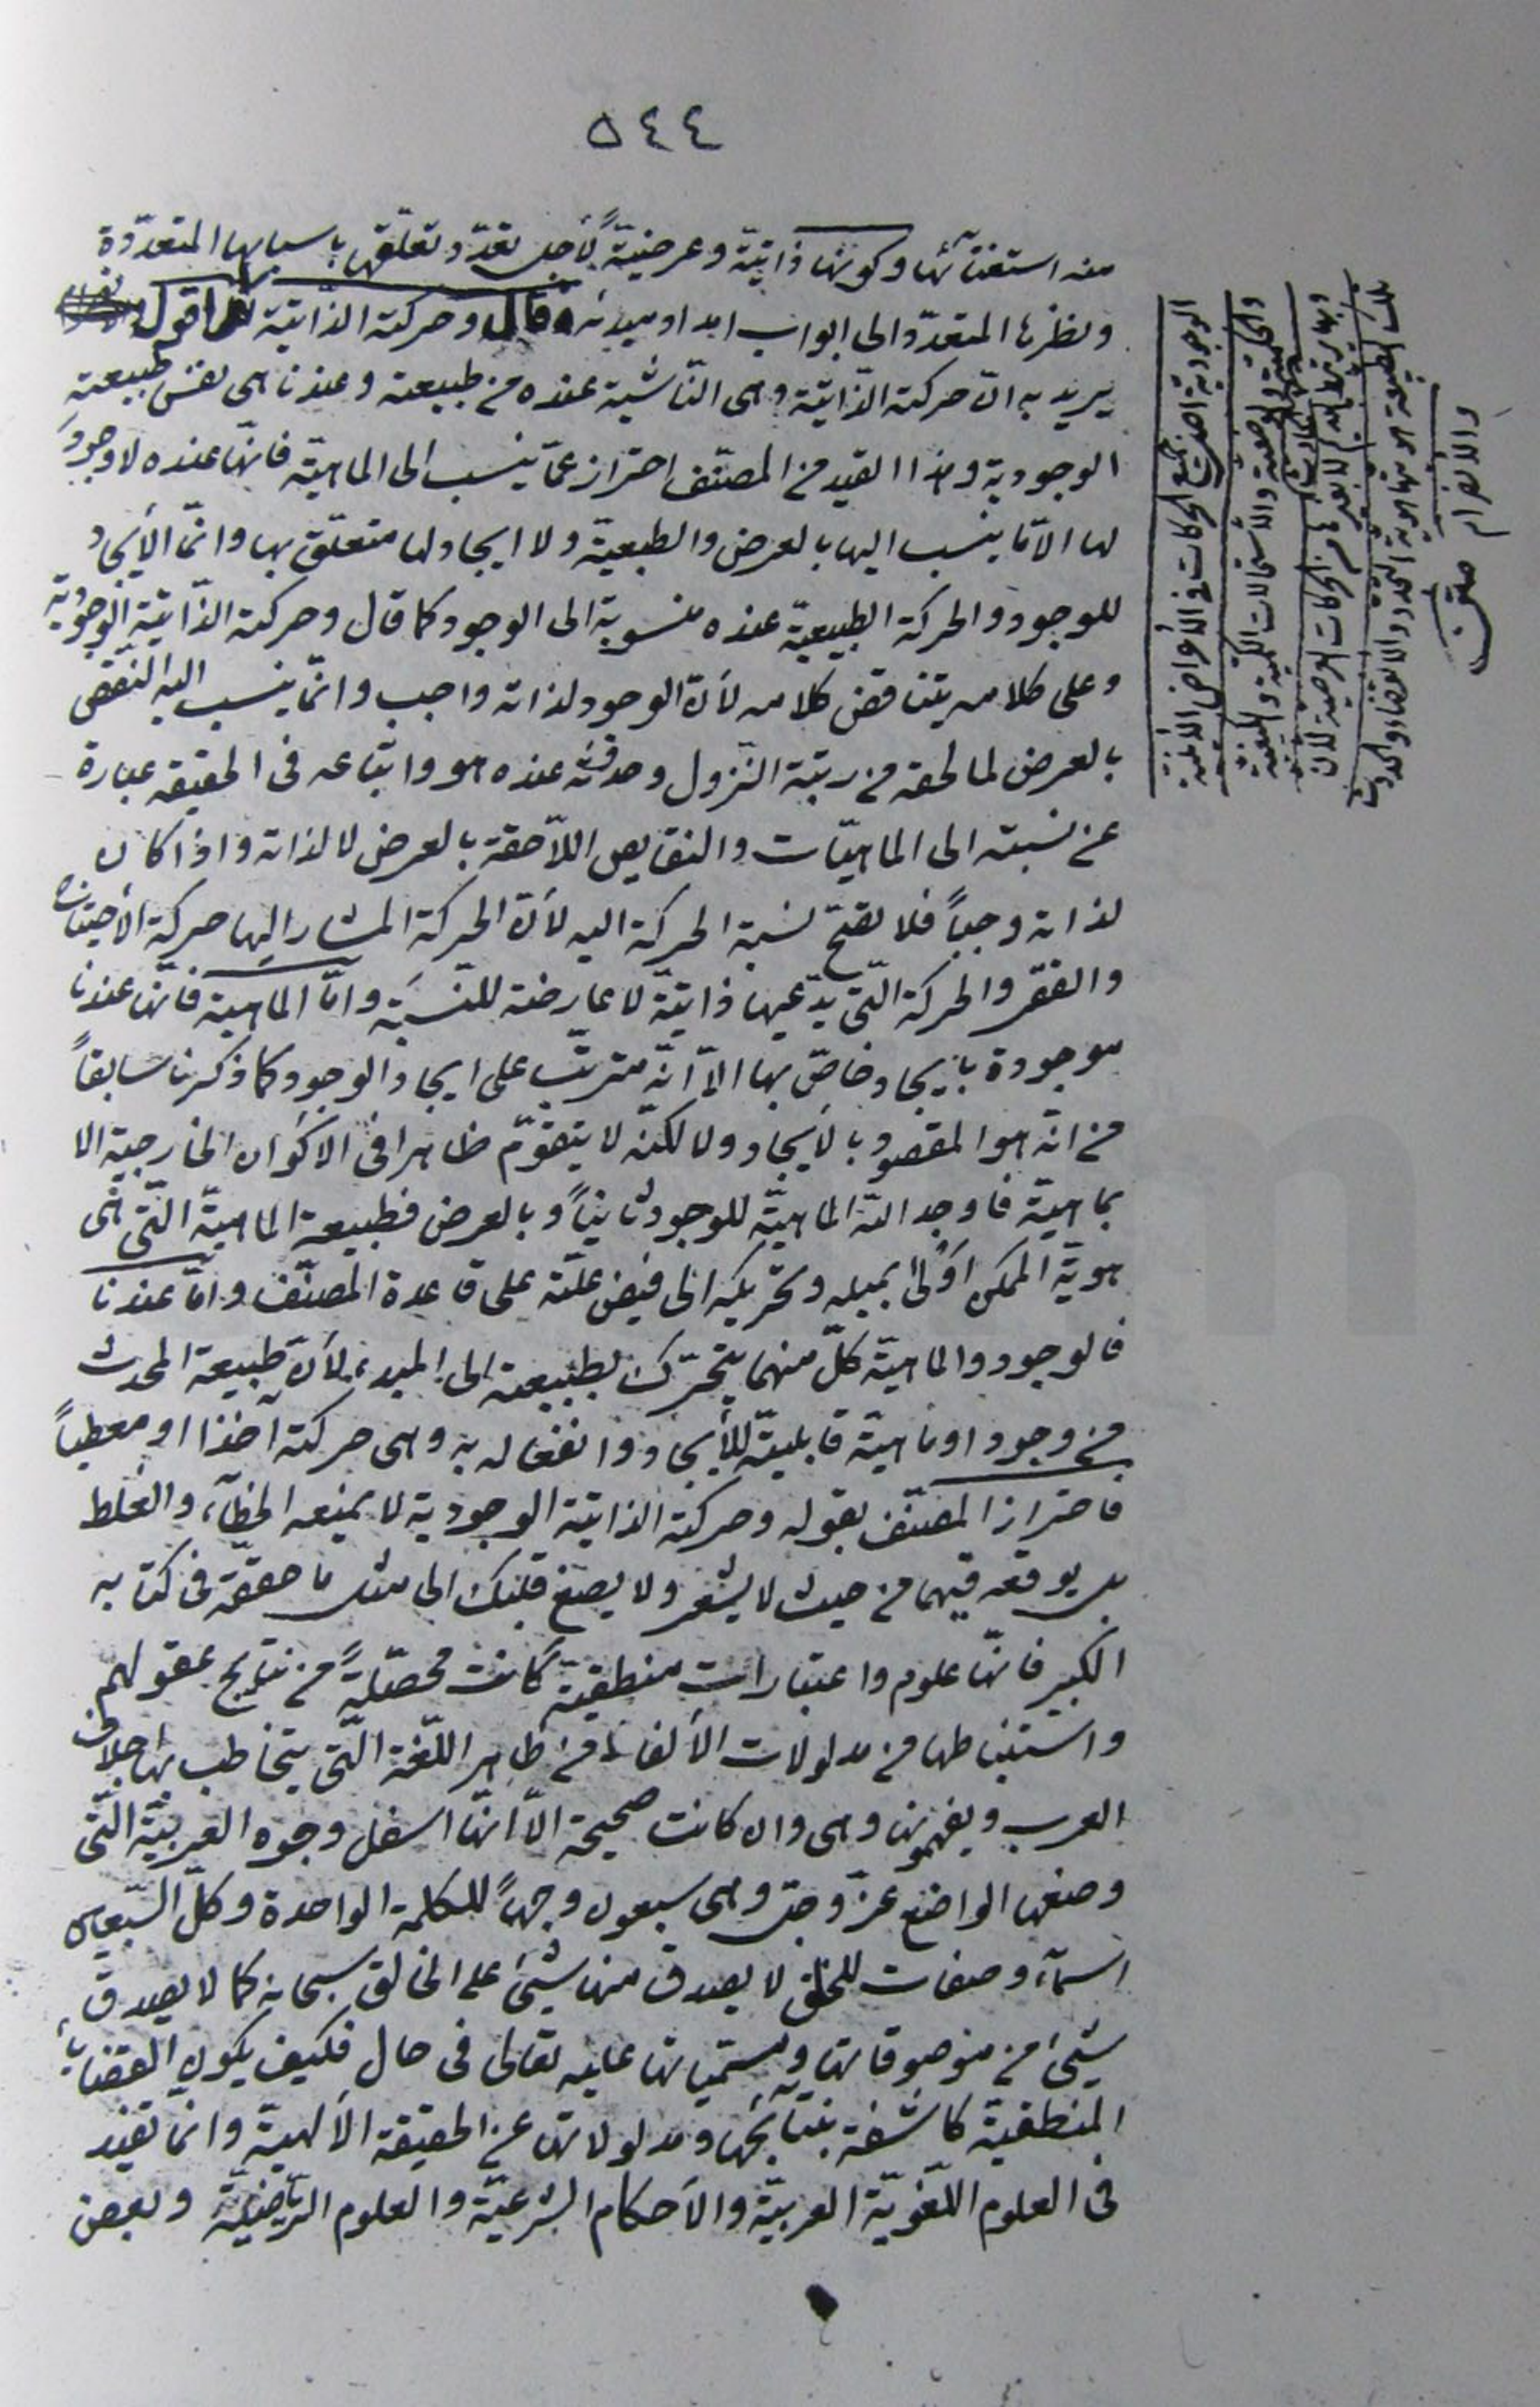 ٥٤٤
منه استغنآئها وكونها ذاتيّة وعرضيّةً لأجل تعدّد تعلّقها باسبابها المتعدّدة
ونظرها المتعدّد الى ابواب امداد مبدئه قال وحركته الذّاتيّة اقول
يريد به انّ حركته الذّاتيّة وهى النّاشية عنده من طبيعته وعندنا هى نفس طبيعته
الوجودية وهذا القيد من المصنّف احتراز عمّا ينسب الى الماهيّة فانّها عنده لا وجود
لها الّا ما ينسب اليها بالعرض والطبعيّة ولا ايجاد لها متعلّق بها وانّما الأيجاد
للوجود والحركة الطبيعيّة عنده منسوبة الى الوجود كما قال وحركته الذّاتيّة الوجوديّة
وعلى كلامه يتناقض كلامه لأنّ الوجود لذاته واجب وانّما ينسب اليه النّقص
بالعرض لما لحقه من رتبة النّزول وحدوثه عنده هو واتباعه فى الحقيقه عبارة
عن نسبته الى الماهيّات والنقايص اللّاحقة بالعرض لا لذاته واذا كان
لذاته وجباً فلا تصحّ نسبة الحركة اليه لأنّ الحركة المشار اليها حركة الأحتياج
والفقر والحركة الّتى يدّعيها ذاتيّة لا عارضة للنّسبَة وامّا الماهيّة فانّها عندنا
موجودة بايجاد خاصّ بها الّا انّه مترتّب على ايجاد الوجود كما ذكرنا سَابقاً
من انّه هو المقصود بالأيجاد ولا لكنّه لا يتقوّم ظاهرا فى الاكوان الخارجيّة الا
بماهيّة فاوجد اللّه الماهيّة للوجود ثانياً وبالعرض فطبيعة الماهيّة الّتى هى
هويّة الممكن اَوْلىٰ بميله وتحريكه الى فيض علّته على قاعدة المصنّف وامّا عندنا
فالوجود والماهيّة كلّ منهما يتحرّك بطبيعته الى المبدء لأنّ طبيعة المحدث
من وجود او ماهيّة قابليّة للأيجاد وانفعاله به وهى حركته آخذا او معطياً
فاحتراز المصنّف بقوله وحركته الذاتيّة الوجودية لا يمنعه الخطآء والغلط
بل يوقعه فيهما من حيث لا يشعر ولا يصغ قلبك الى مثل ما حقّقه فى كتابه
الكبير فانّها علوم واعتبارات منطقيّة كانت محصّلةً من نتايج عقولهم
واستنباطها من مدلولات الألفاظ من ظاهر اللّغة الّتى يتخاطب بها
العرب ويفهمونها وهى وان كانت صحيحة الّا انّها اسفل وجوه العربيّة الّتى
وضعها الواضع عزّ وجلّ وهى سبعون وجهاً للكلمة الواحدة وكلّ السّبعين
اسمآء وصفات للخلق لا يصدق منها شيئ على الخالق سبحانه كما لا يصدق
شيئ من موصوفاتها ومسمّياتها عليه تعالى فى حال فكيف يكون القضايا
المنطقيّة كاشفة بنتآئجها ومدلولاتها عن الحقيقة الألهيّة وانّما تفيد
فى العلوم اللّغويّة العربيّة والأحكام الشرعيّة والعلوم الرّياضيّة وبعض